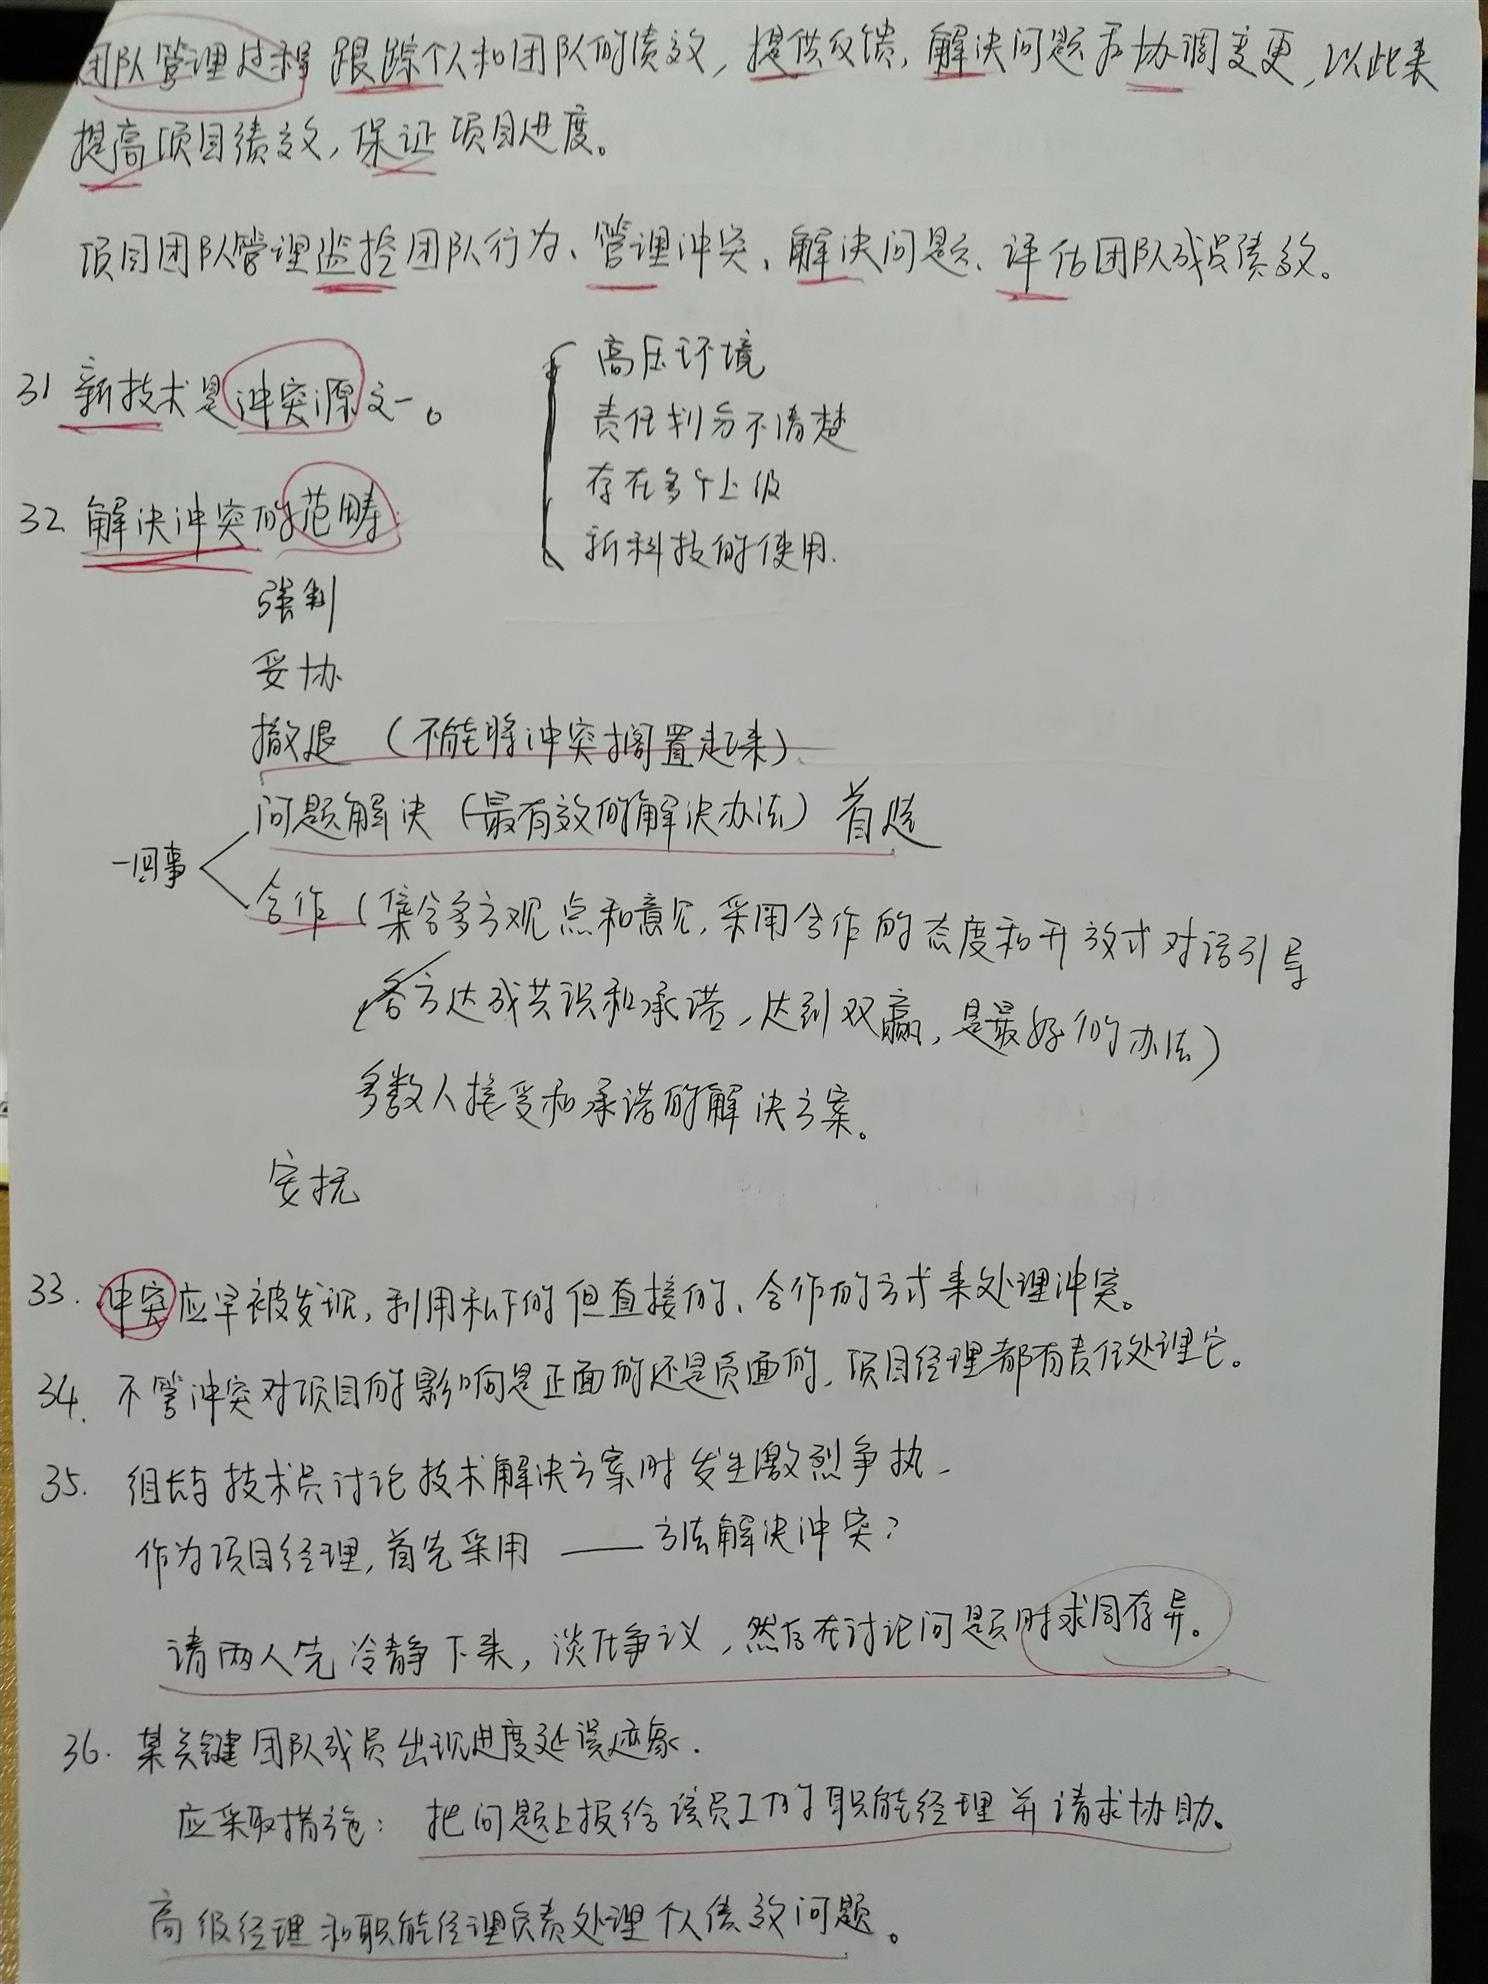 团队管理过程 跟踪个人和团队的绩效，提供反馈，解决问题和协调变更，以此来
提高项目绩效，保证项目进度。
项目团队管理监控团队行为、管理冲突、解决问题、评估团队成员绩效。
31 新技术是冲突源之一。
高压环境
责任划分不清楚
存在多个上级
新科技的使用.
32. 解决冲突的范畴:
强制
妥协
撤退 （不能将冲突搁置起来）
问题解决（最有效的解决办法）首选
一回事
合作（集合多方观点和意见，采用合作的态度和开放式对话引导
各方达成共识和承诺，达到双赢，是最好的办法）
多数人接受和承诺的解决方案。
安抚
33. 冲突应早被发现，利用私下的但直接的、合作的方式来处理冲突。
34. 不管冲突对项目的影响是正面的还是负面的，项目经理都有责任处理它。
35. 组长与技术员讨论技术解决方案时发生激烈争执，
作为项目经理，首先采用 ____ 方法解决冲突？
请两人先冷静下来，淡化争议，然后在讨论问题时求同存异。
36. 某关键团队成员出现进度延误迹象.
应采取措施：把问题上报给该员工的职能经理并请求协助。
高级经理和职能经理负责处理个人绩效问题。